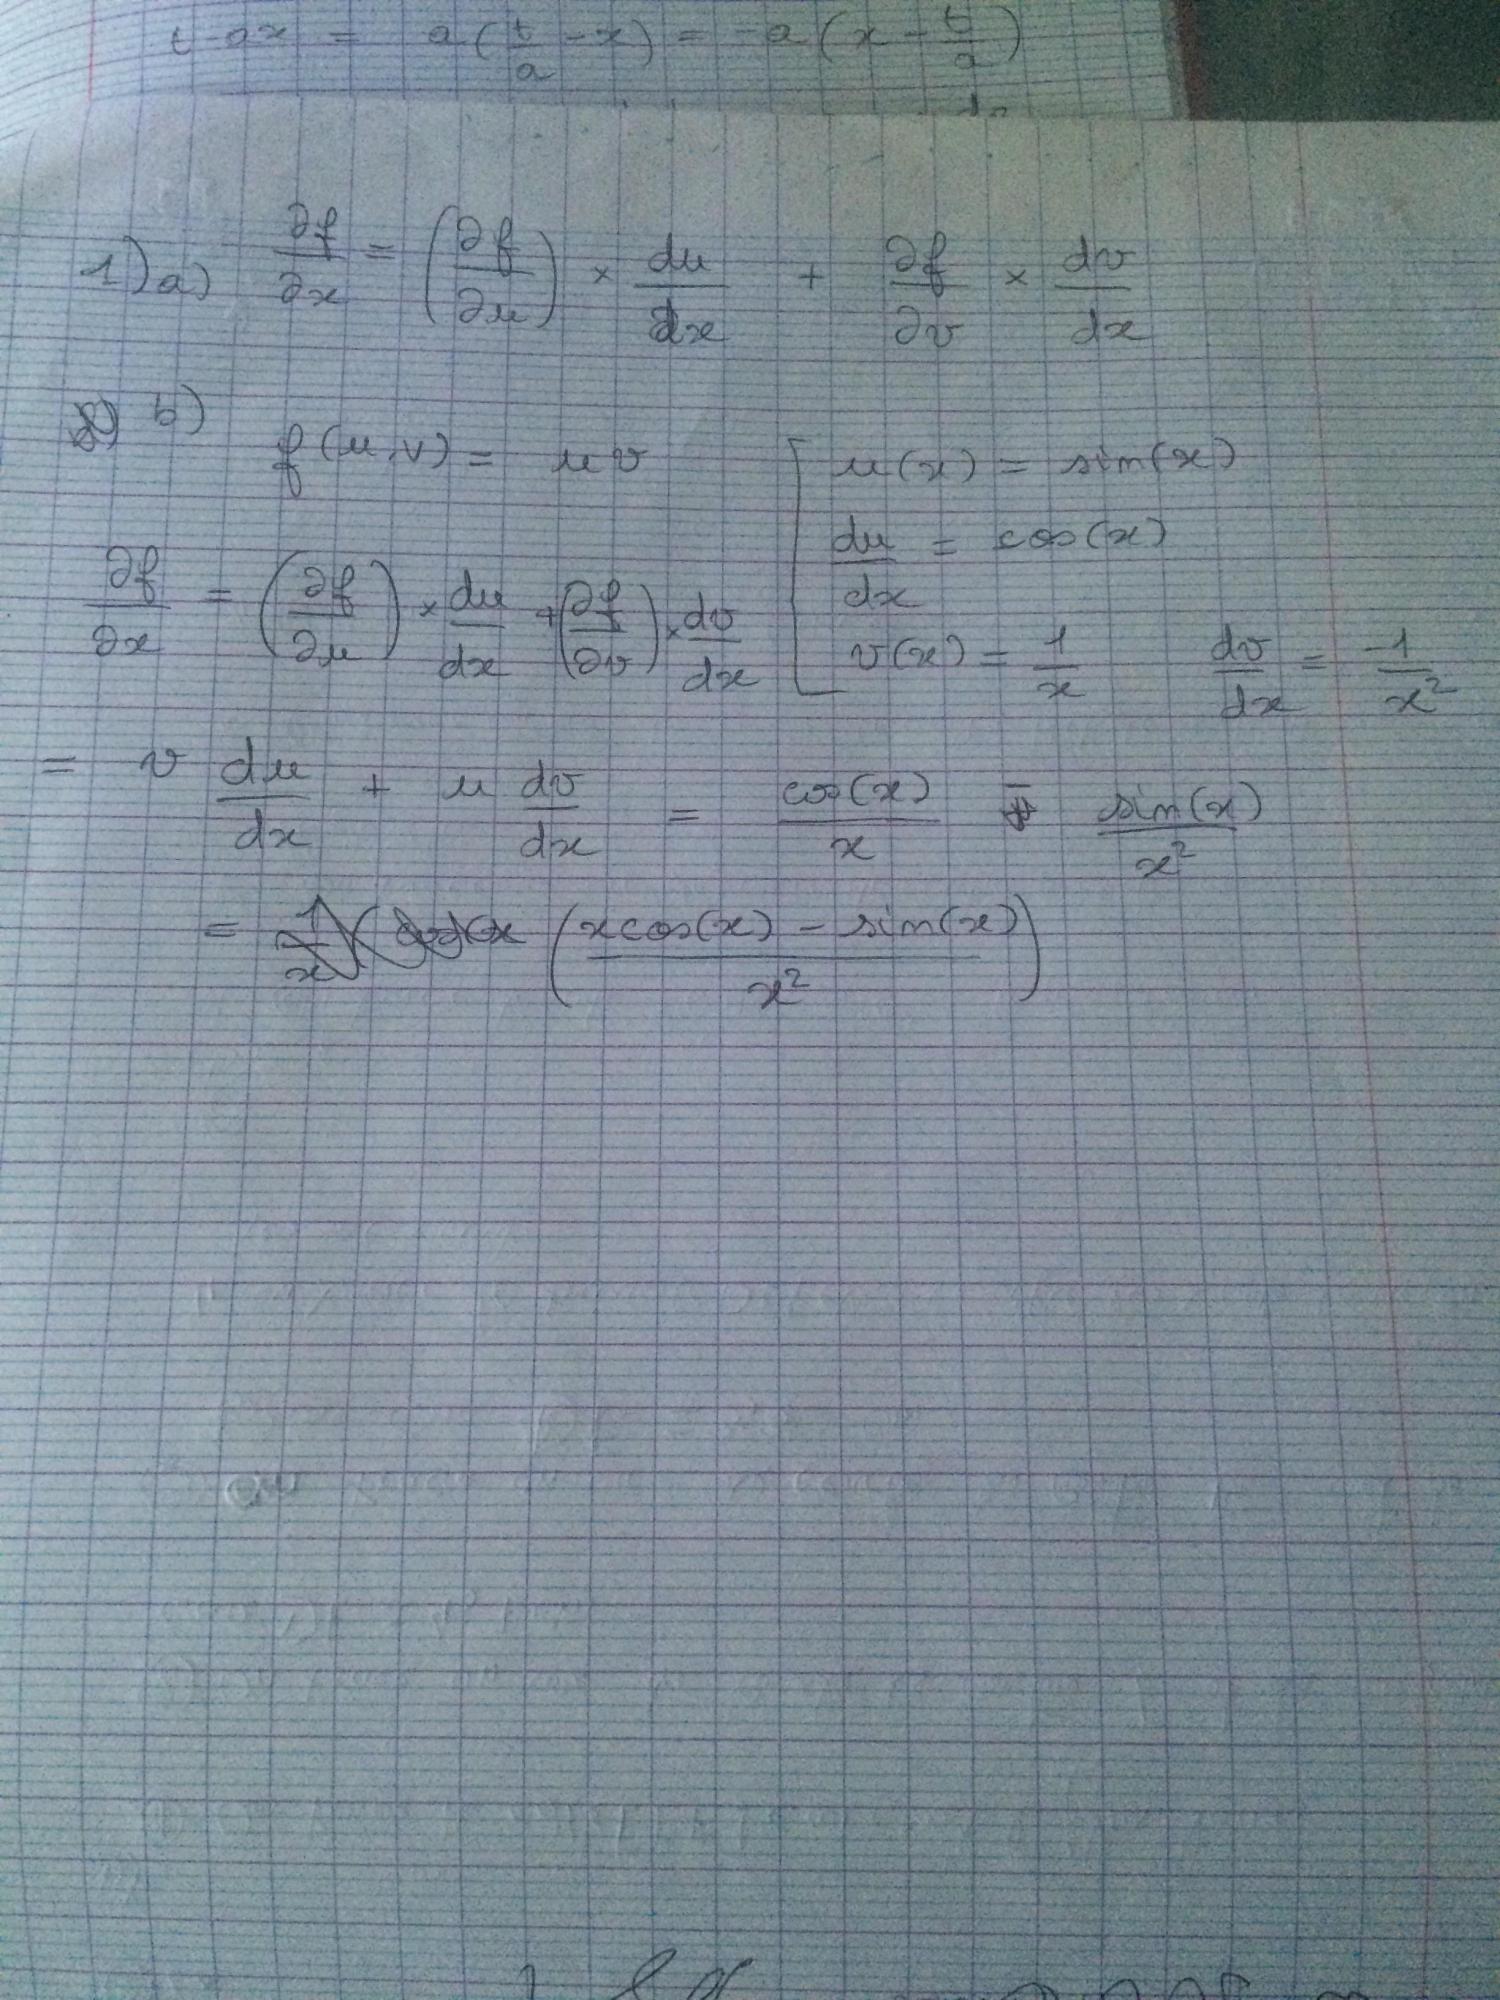 t - ax = a(t/a - x) = -a(x - t/a)
1) a) ∂f/∂x = (∂f/∂u) × du/dx + ∂f/∂v × dv/dx
b) f(u,v) = uv [ u(x) = sin(x)
du/dx = cos(x)
∂f/∂x = (∂f/∂u) × du/dx + (∂f/∂v) × dv/dx
v(x) = 1/x dv/dx = -1/x²
= v du/dx + u dv/dx = cos(x)/x - sin(x)/x²
= (xcos(x) - sin(x)/x²)